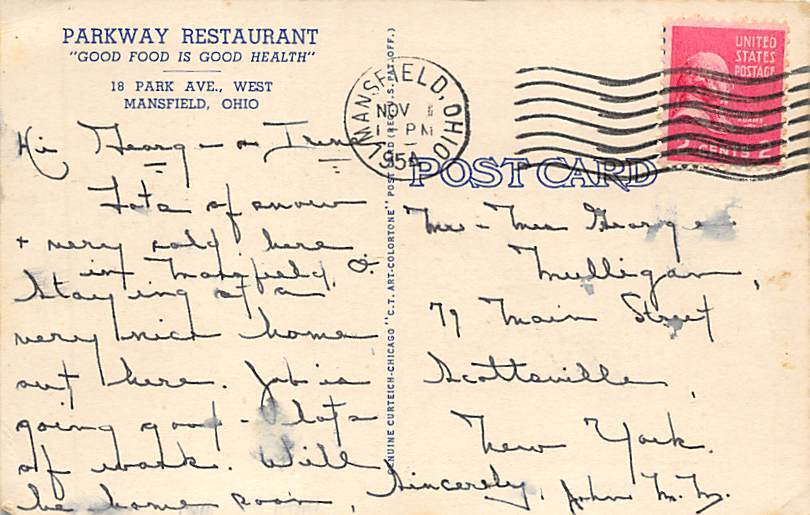 PARKWAY RESTAURANT
"GOOD FOOD IS GOOD HEALTH"
18 PARK AVE., WEST
MANSFIELD, OHIO
Hi George - Irene
Lots of snow
+ very cold here
in Mansfield, O.
Staying at a
very nice home
out here. Job is
going good - lots
of work. Will
be home soon,
Sincerely, John M. M.
GENUINE CURTEICH-CHICAGO "C.T. ART-COLORTONE" POST CARD (REG. U.S. PAT. OFF.)
MANSFIELD, OHIO
NOV
PM
UNITED
STATES
POSTAGE
ADAMS
2 CENTS 2
POST CARD
Mr - Mrs George
Mulligan,
79 Main Street
Scottsville,
New York.